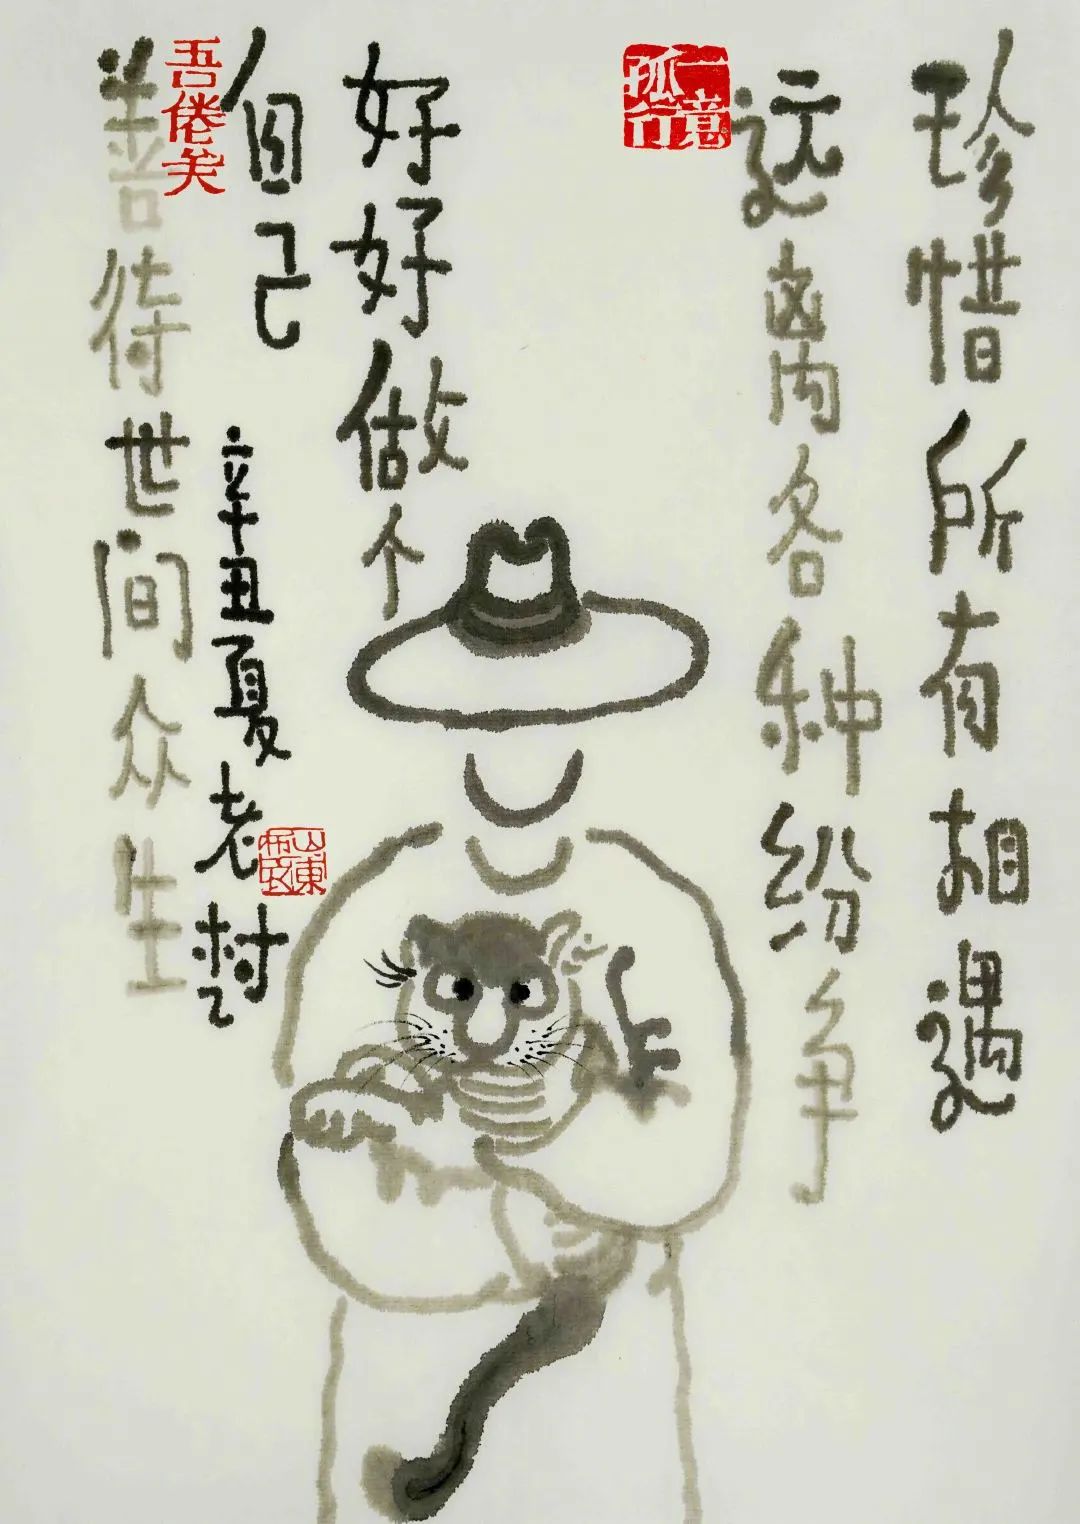 珍惜所有相遇
远离各种纷争
一意孤行
好好做个
自己
辛丑夏老村
山東
吾倦矣
善待世间众生